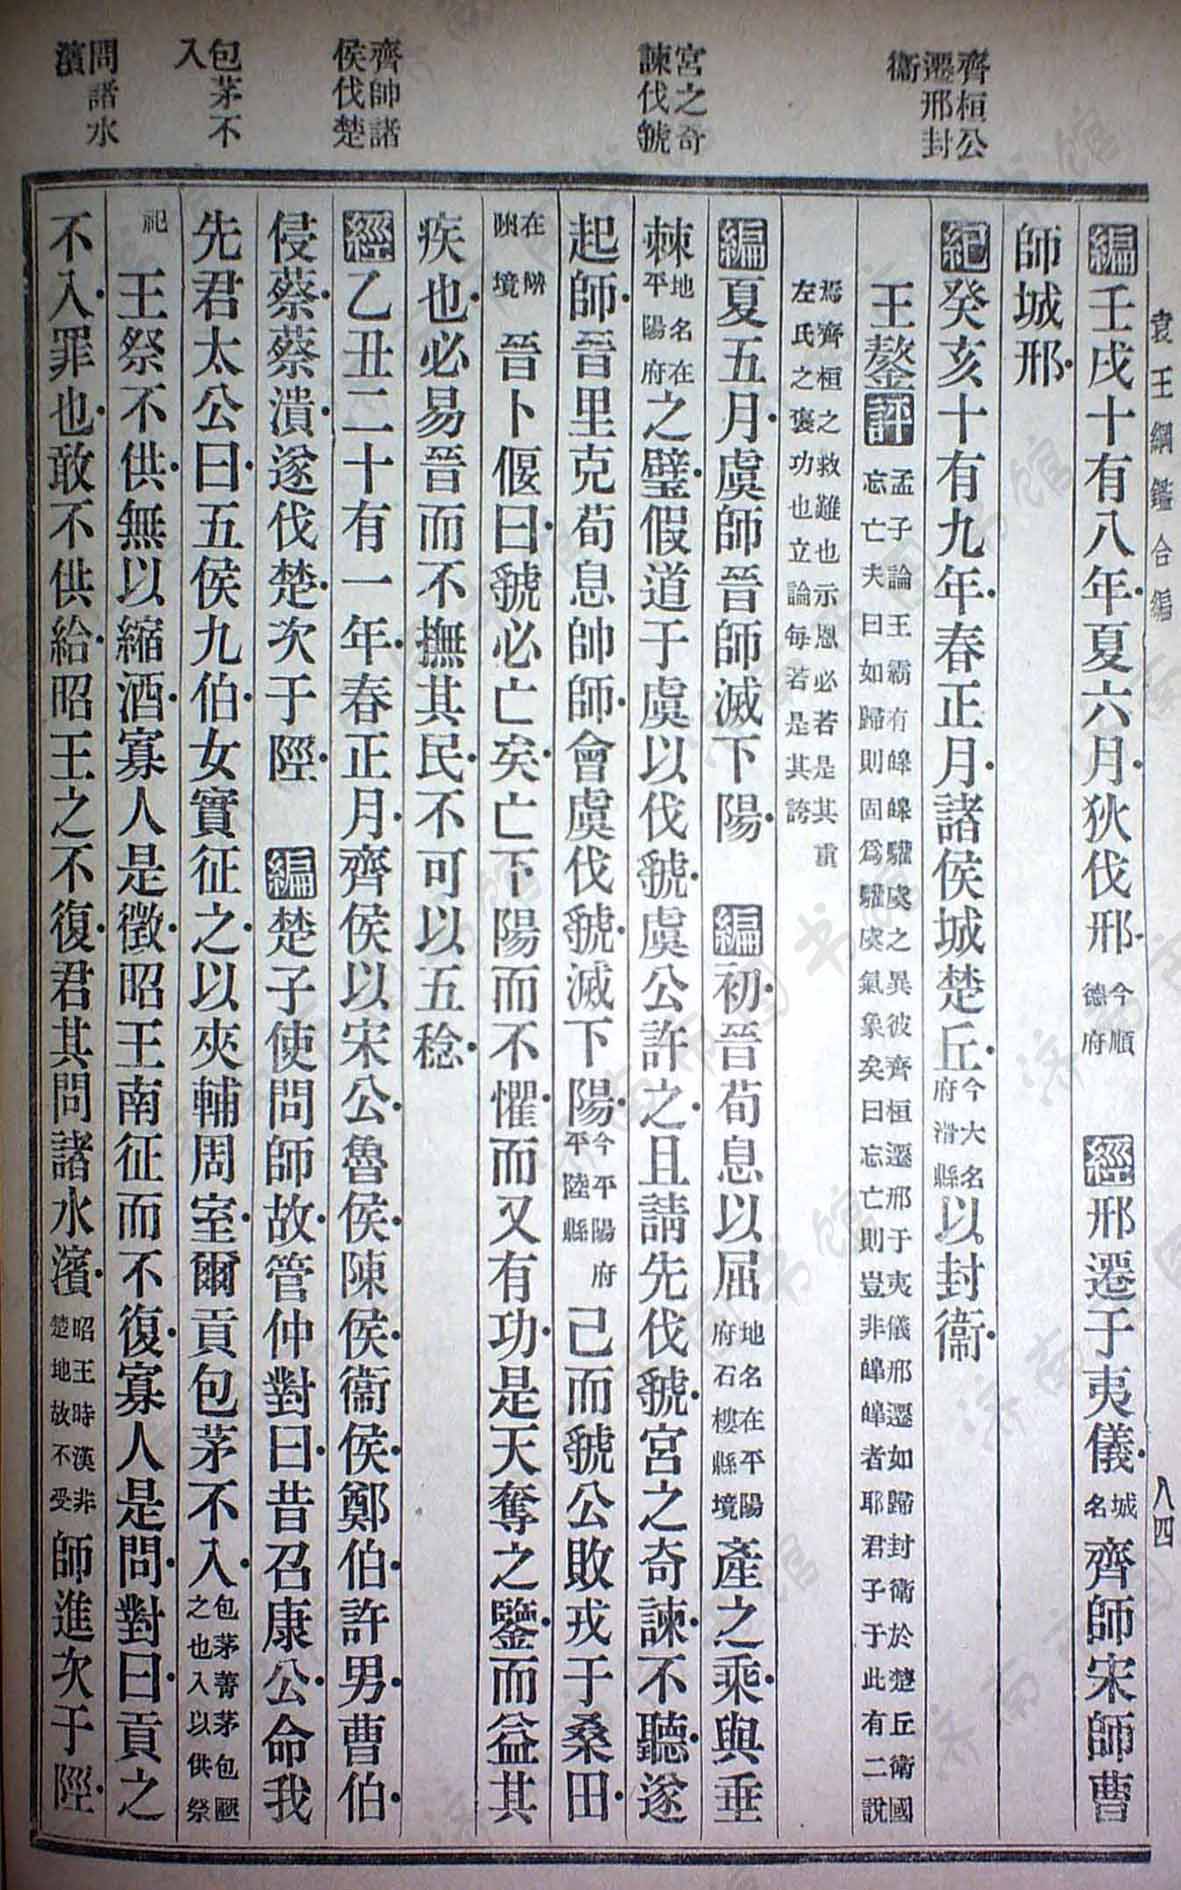 齊桓公
遷邢封
衞
宮之奇
諫伐虢
齊帥諸
侯伐楚
包茅不
入
問諸水
濱
袁王綱鑑合編
八四
編壬戌十有八年夏六月狄伐邢今順德府 經邢遷于夷儀城名齊師宋師曹
師城邢
紀癸亥十有九年春正月諸侯城楚丘今大名府滑縣以封衞
王鏊評孟子論王霸有皞皞驩虞之異彼齊桓遷邢于夷儀邢遷如歸封衛於楚丘衛國忘亡夫曰如歸則固爲驩虞氣象矣曰忘亡則豈非皞皞者耶君子于此有二說
焉齊桓之救難也示恩必若是其重左氏之褒功也立論每若是其誇
編夏五月虞師晉師滅下陽 編初晉荀息以屈地名在平陽府石樓縣境產之乘與垂
棘地名在平陽府之璧假道于虞以伐虢虞公許之且請先伐虢宮之奇諫不聽遂
起師晉里克荀息帥師會虞伐虢滅下陽今平陽府平陸縣己而虢公敗戎于桑田
在陝境晉卜偃曰虢必亡矣亡下陽而不懼而又有功是天奪之鑒而益其
疾也必易晉而不撫其民不可以五稔
經乙丑二十有一年春正月齊侯以宋公魯侯陳侯衞侯鄭伯許男曹伯
侵蔡蔡潰遂伐楚次于陘 編楚子使問師故管仲對曰昔召康公命我
先君太公曰五侯九伯女實征之以夾輔周室爾貢包茅不入包茅菁茅包匭之也入以供祭
祀王祭不供無以縮酒寡人是徵昭王南征而不復寡人是問對曰貢之
不入罪也敢不供給昭王之不復君其問諸水濱昭王時漢非楚地故不受師進次于陘